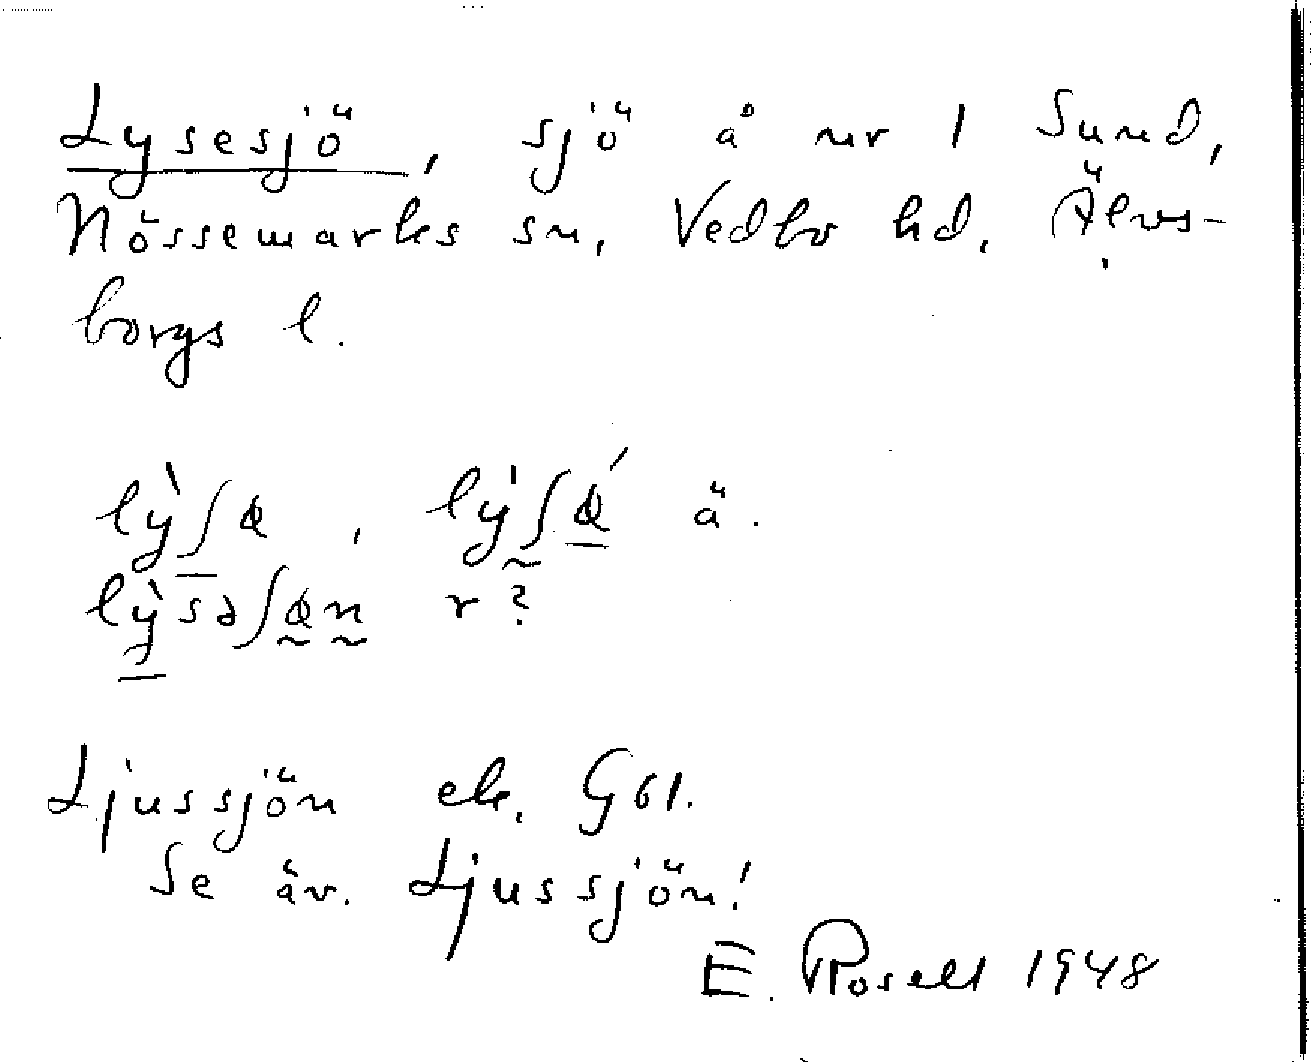 Lysesjö, sjö å nr 1 Sund,
Nössemarks sn, Vedbo hd, Älvs-
borgs l.
ä.
r?
Ljussjön ek. G61.
Se äv. Ljussjön!
E. Rosell 1948